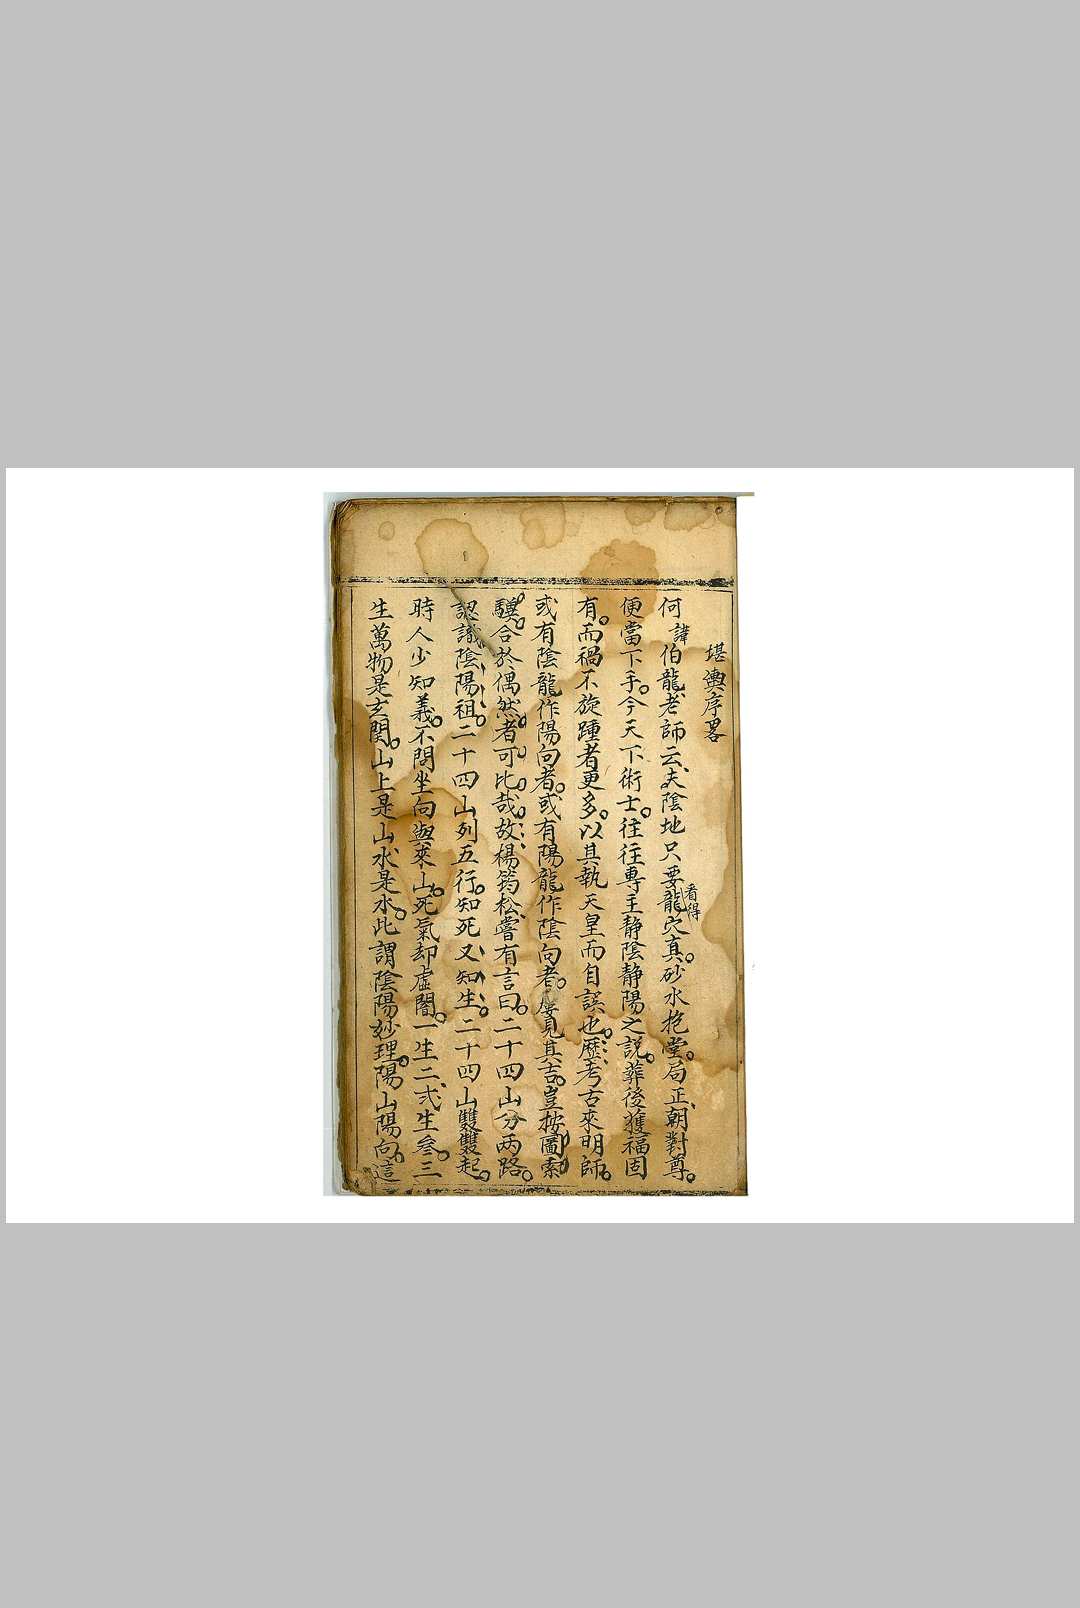 堪輿序畧
何諱伯龍老師云夫陰地只要看得龍穴真。砂水抱堂。局正朝對尊。
便當下手。今天下術士。往往專主静陰静陽之説。葬後獲福固
有。而禍不旋踵者更多。以其執天皇而自誤也。歷考古來明師。
或有陰龍作陽向者。或有陽龍作陰向者。屡見其吉。豈按圖索
驥。合於偶然者可比哉。故楊筠松嘗有言曰。二十四山分两路。
認識陰陽祖。二十四山列五行。知死又知生。二十四山雙雙起。
時人少知義。不問坐向與來山。死氣却虛闇。一生二弍生叁。三
生萬物是玄関。山上是山水是水。此謂陰陽妙理。陽山陽向。這